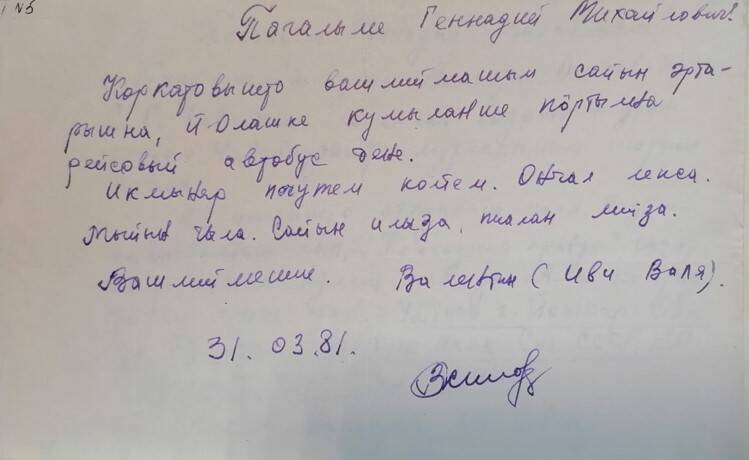 №5
Пагалыме Геннадий Михайлович!
Коркатовышто вашлиймашым сайын эрта-
рышна, Йолашке кумыланше пӧртылна
рейсовый автобус дене.
Икмыняр жутем колтем. Ончал лекса.
Мыйын гала. Сайын илыза, пиалан лийза.
Вашлиймешке. Валентин (Иви Валя).
31.03.81.